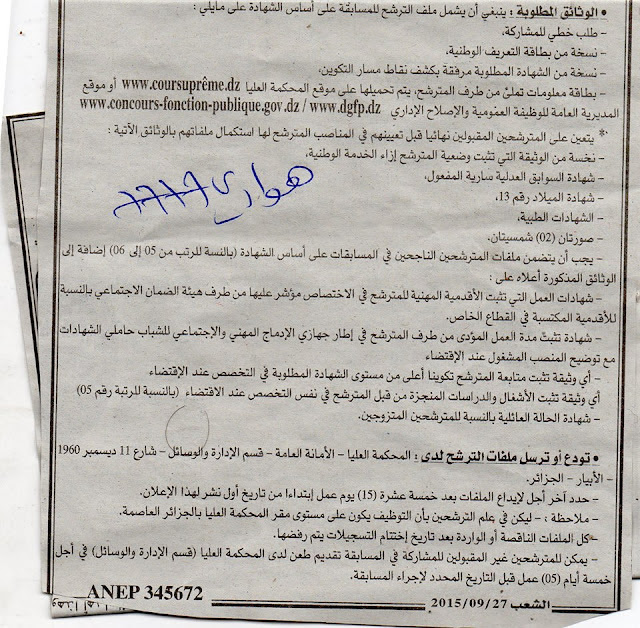 • الوثائق المطلوبة : ينبغي أن يشمل ملف الترشح للمسابقة على أساس الشهادة على مايلي :
– طلب خطي للمشاركة،
– نسخة من بطاقة التعريف الوطنية،
– نسخة من الشهادة المطلوبة مرفقة بكشف نقاط مسار التكوين،
– بطاقة معلومات تملئ من طرف المترشح، يتم تحميلها على موقع المحكمة العليا www.coursuprême.dz أو موقع
المديرية العامة للوظيفة العمومية والإصلاح الإداري www.concours-fonction-publique.gov.dz / www.dgfp.dz
* يتعين على المترشحين المقبولين نهائيا قبل تعيينهم في المناصب المترشح لها استكمال ملفاتهم بالوثائق الآتية :
– نخسة من الوثيقة التي تثبت وضعية المترشح إزاء الخدمة الوطنية،
– شهادة السوابق العدلية سارية المفعول،
– شهادة الميلاد رقم 13،
– الشهادات الطبية،
– صورتان (02) شمسيتان.
هواري
– يجب أن يتضمن ملفات المترشحين الناجحين في المسابقات على أساس الشهادة (بالنسة للرتب من 05 إلى 06) إضافة إلى
الوثائق المذكورة أعلاه على :
– شهادات العمل التي تثبت الأقدمية المهنية للمترشح في الاختصاص مؤشر عليها من طرف هيئة الضمان الاجتماعي بالنسبة
للأقدمية المكتسبة في القطاع الخاص.
– شهادة تثبت مدة العمل المؤدى من طرف المترشح في إطار جهازي الإدماج المهني والإجتماعي للشباب حاملي الشهادات
مع توضيح المنصب المشغول عند الإقتضاء
– أي وثيقة تثبت متابعة المترشح تكوينا أعلى من مستوى الشهادة المطلوبة في التخصص عند الإقتضاء
أي وثيقة تثبت الأشغال والدراسات المنجزة من قبل المترشح في نفس التخصص عند الاقتضاء (بالنسبة للرتبة رقم 05)
– شهادة الحالة العائلية بالنسبة للمترشحين المتزوجين.
• تودع أو ترسل ملفات الترشح لدى : المحكمة العليا – الأمانة العامة – قسم الإدارة والوسائل – شارع 11 ديسمبر 1960
– الأبيار – الجزائر.
– حدد آخر أجل لإيداع الملفات بعد خمسة عشرة (15) يوم عمل إبتداءا من تاريخ أول نشر لهذا الإعلان.
– ملاحظة : – ليكن في علم الترشحين بأن التوظيف يكون على مستوى مقر المحكمة العليا بالجزائر العاصمة.
– كل الملفات الناقصة أو الواردة بعد تاريخ إختتام التسجيلات يتم رفضها.
– يمكن للمترشحين غير المقبولين للمشاركة في المسابقة تقديم طعن لدى المحكمة العليا (قسم الإدارة والوسائل) في أجل
خمسة أيام (05) عمل قبل التاريخ المحدد لإجراء المسابقة.
الشعب 2015/09/27
ANEP 345672